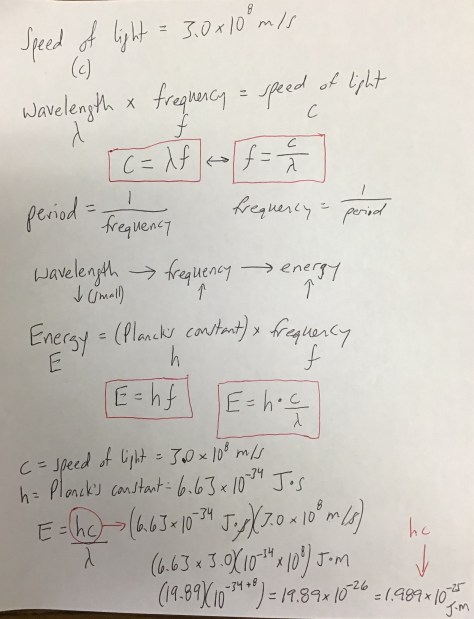 Speed of light = 3.0 x 10⁸ m/s
(c)
Wavelength x frequency = speed of light
λ f C
C = λf ↔ f = c/λ
period = 1/frequency frequency = 1/period
wavelength → frequency → energy
↓ (small) ↑ ↑
Energy = (Planck's constant) x frequency
E h f
E = hf E = h · c/λ
C = speed of light = 3.0 x 10⁸ m/s
h = Planck's constant = 6.63 x 10⁻³⁴ J·s
E = hc/λ → (6.63 x 10⁻³⁴ J·s)(3.0 x 10⁸ m/s)
hc
(6.63 x 3.0)(10⁻³⁴ x 10⁸) J·m
(19.89)(10⁻³⁴⁺⁸) = 19.89 x 10⁻²⁶ = 1.989 x 10⁻²⁵ J·m